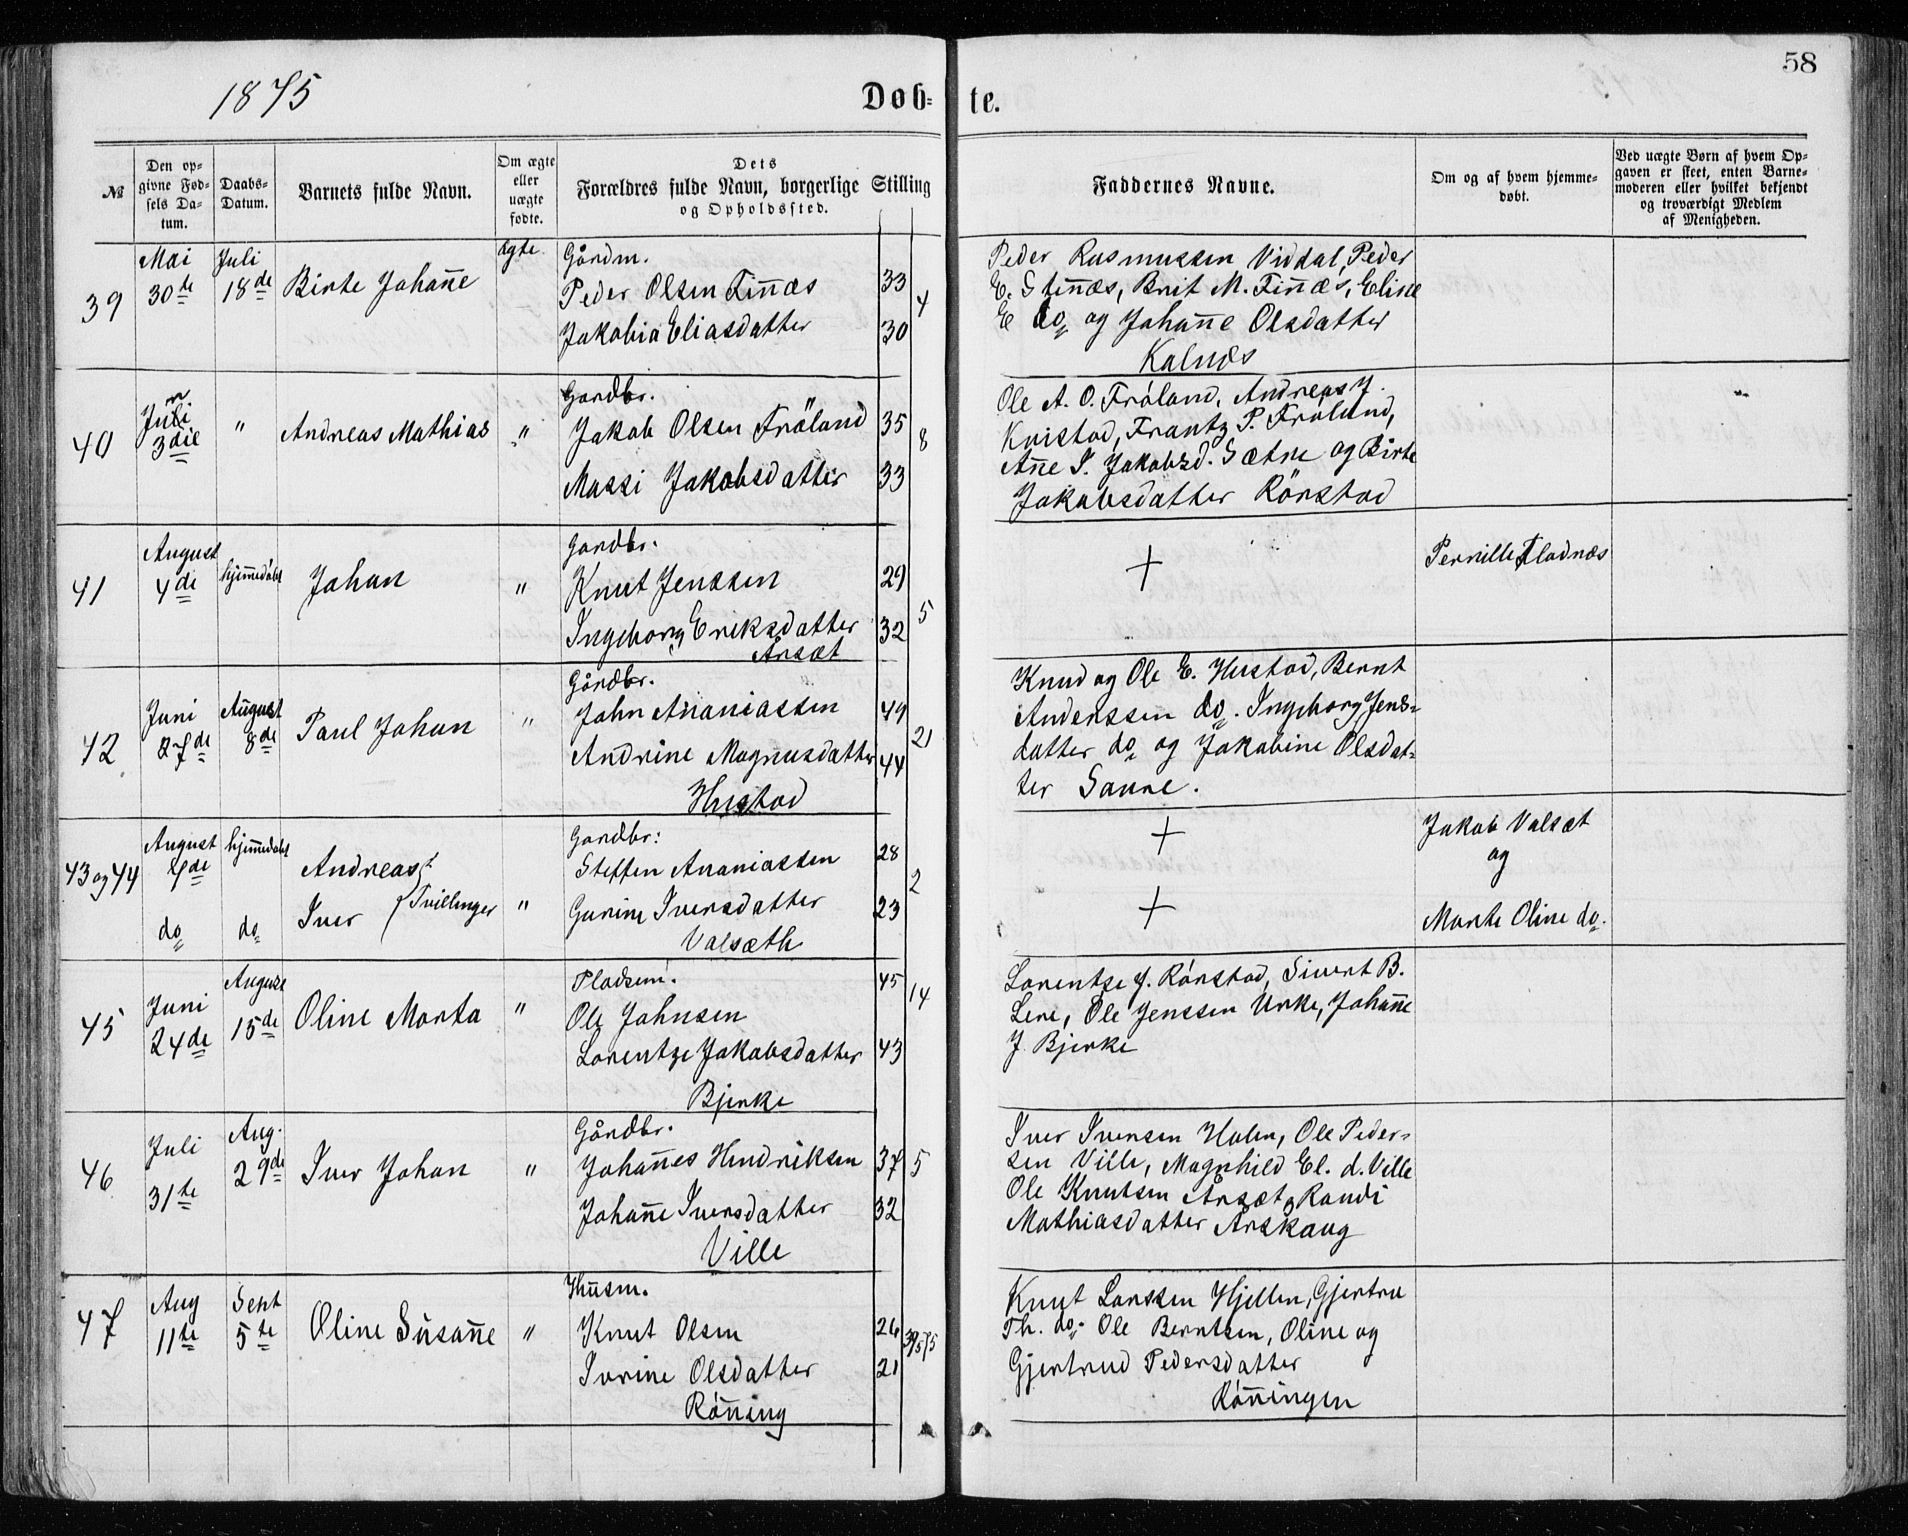 58
1875
Døb-
te.
№
Den op-
givne Fød-
sels Da-
tum.
Daabs-
Datum.
Barnets fulde Navn.
Om ægte
eller
uægte
fødte.
Dets
Forældres fulde Navn, borgerlige Stilling
og Opholdssted.
Faddernes Navne.
Om og af hvem hjemme-
døbt.
Ved uægte Børn af hvem Op-
gaven er skeet, enten Barne-
moderen eller hvilket bekjendt
og troværdigt Medlem
af Menigheden.
39
Mai
30te
Juli
18de
Birte Johan̄e
ægte
Gårdm.
Peder Olsen Fin̄æs 33
Jakobia Eliasdatter 30
4
Peder Rasmussen Viddal, Peder
E. Sten̄æs, Brit M. Fin̄æs, Eline
E do og Johan̄e Olsdatter
Kalnæs
40
Juni
3die
"
Andreas Mathias
"
Gardbr.
Jakob Olsen Frøland 35
Massi Jakobsdatter 33
8
Ole A. O. Frøland, Andreas J.
Kvistad, Frantz P. Frøland,
An̄e I. Jakobsd. Sætre og Birte
Jakobsdatter Rørstad
41
August
4de
hjem̄edøbt
Johan
"
Gardbr.
Knut Jenssen 29
Ingeborg Eriksdatter 32
Årsæt
5
+
Pernille Fladnæs
42
Juni
27de
August
8de
Paul Johan
"
Gårdbr.
John Ananiassen 49
Andrine Magnusdatter 44
Hustad
21
Knud og Ole E. Hustad, Bernt
Anderssen do. Ingeborg Jens-
datter do og Jakobine Olsdat-
ter Saure.
43 og 44
August
4de
hjem̄edøbt
do
do
Andreas
Iver
Tvillinger
"
Gardbr:
Steffen Ananiassen 28
Gurine Iversdatter 23
Valsæth
2
+
+
Jakob Valsæt
og
Marte Oline do.
45
Juni
24de
August
15de
Oline Marta
"
Pladsem.
Ole Johnsen 45
Lorentze Jakobsdatter 43
Bjerke
14
Lorentze J. Rørstad, Sivert B.
Lere, Ole Jenssen Urke, Johan̄e
J. Bjerke
46
Juli
31te
Aug.
29de
Iver Johan
"
Gårdbr.
Johan̄es Hendriksen 37
Johan̄e Iversdatter 32
Ville
5
Iver Iversen Holen, Ole Peder-
sen Ville, Magnhild El. d. Ville
Ole Knutsen Årsæt og Randi
Mathiasdatter Årskaug
47
Aug
11te
Sept
5te
Oline Susan̄e
"
Husm.
Knut Olsen 26
Ivrine Olsdatter 21
Røn̄ing
Knut Larssen Hjellen, Gjertru
Th. do. Ole Berntsen, Oline og
Gjertrud Pedersdatter
Røn̄ingen